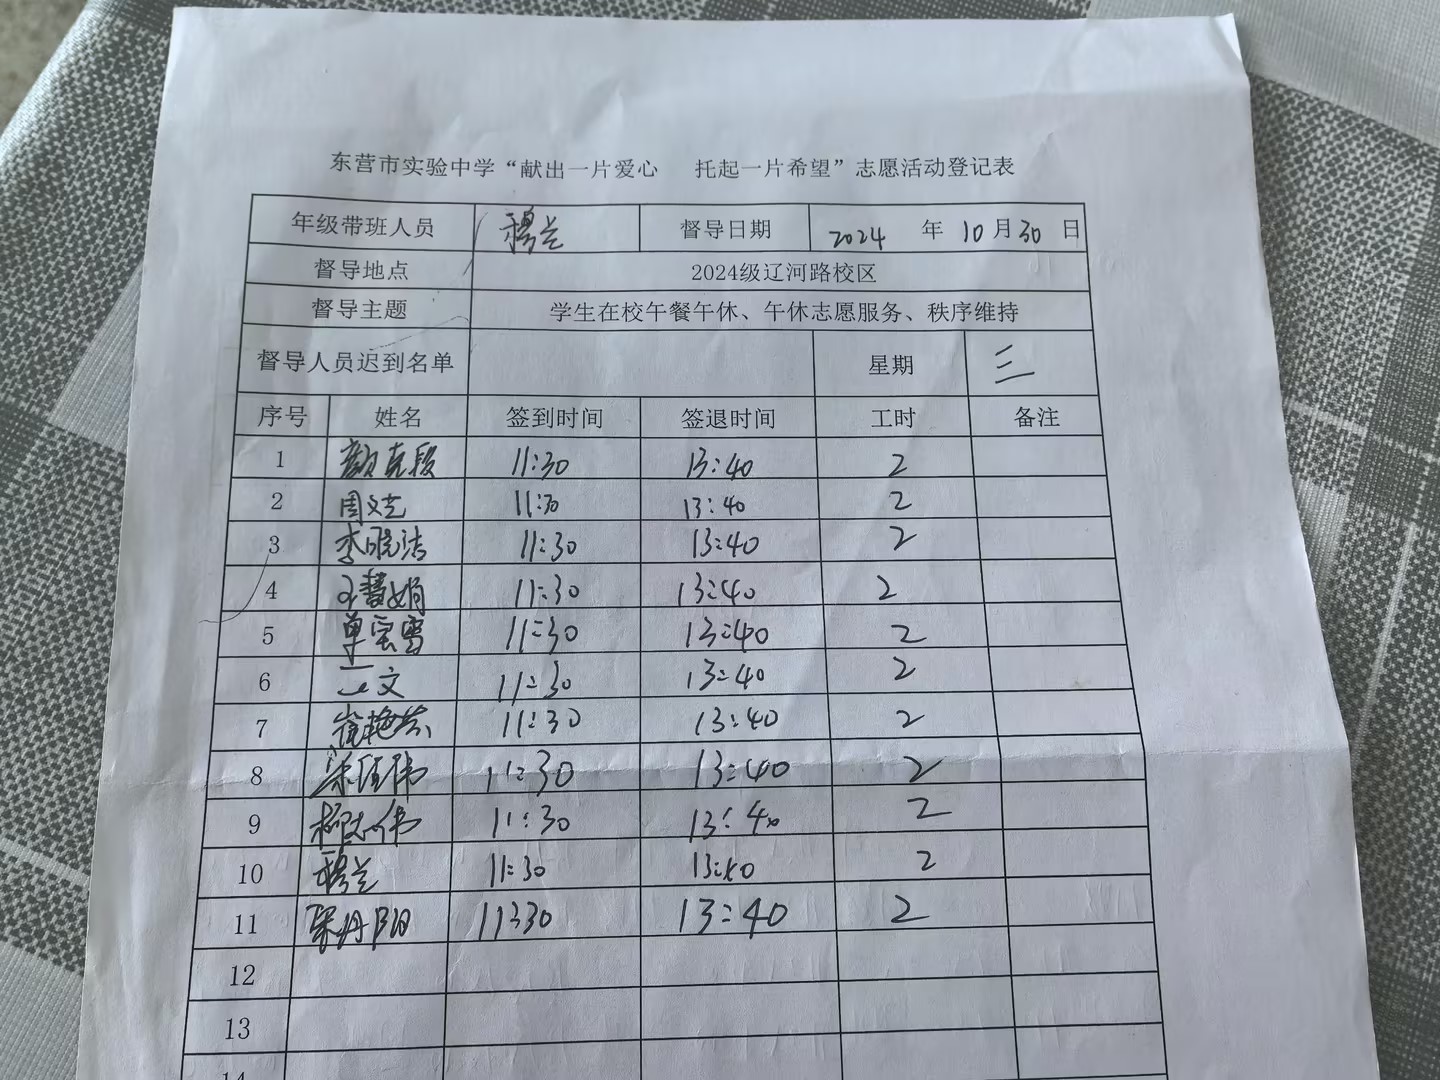 东营市实验中学“献出一片爱心 托起一片希望”志愿活动登记表
年级带班人员 穆兰 督导日期 2024 年 10 月 30 日
督导地点 2024级辽河路校区
督导主题 学生在校午餐午休、午休志愿服务、秩序维持
督导人员迟到名单 星期 三
序号 姓名 签到时间 签退时间 工时 备注
1 11:30 13:40 2
2 11:30 13:40 2
3 李晓洁 11:30 13:40 2
4 王慧娟 11:30 13:40 2
5 单宝雪 11:30 13:40 2
6 11:30 13:40 2
7 崔艳芬 11:30 13:40 2
8 11:30 13:40 2
9 柳志伟 11:30 13:40 2
10 穆兰 11:30 13:40 2
11 11:30 13:40 2
12
13
14